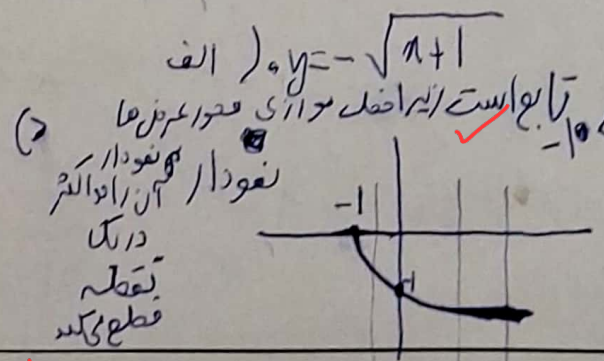 الف) y = -√(x+1)
تابع است زیرا خط موازی محور عرض ها
نمودار
نمودار آن را حداکثر
در یک
نقطه
قطع می کند
-1
-1